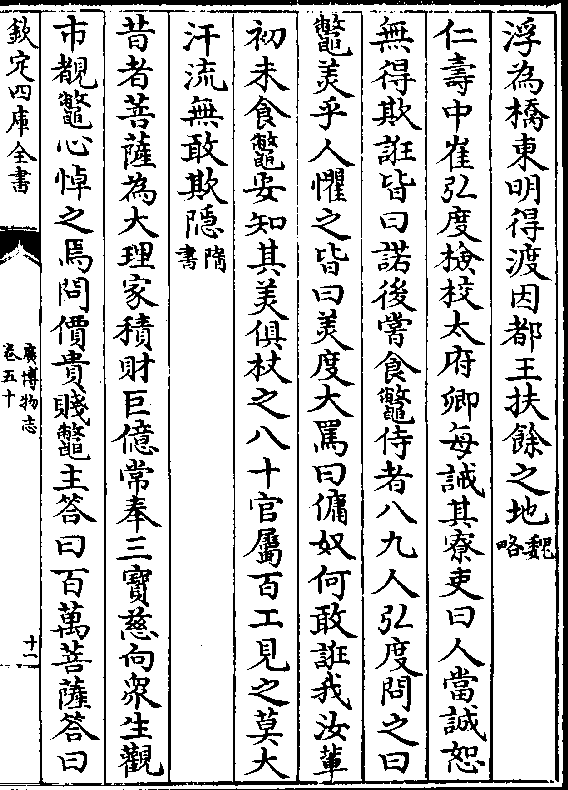 浮為橋東明得渡因都王扶餘之地魏略
仁壽中崔弘度檢校太府卿每誡其寮吏曰人當誠恕
無得欺誑皆曰諾後嘗食鼈侍者八九人弘度問之曰
鼈美乎人懼之皆曰美度大罵曰傭奴何敢誑我汝輩
初未食鼈安知其美俱杖之八十官屬百工見之莫大
汗流無敢欺隱隋書
昔者菩薩為大理家積財巨億常奉三寶慈向衆生觀
市覩鼈心悼之焉問價貴賤鼈主答曰百萬菩薩答曰
欽定四庫全書
廣博物志
卷五十
十一